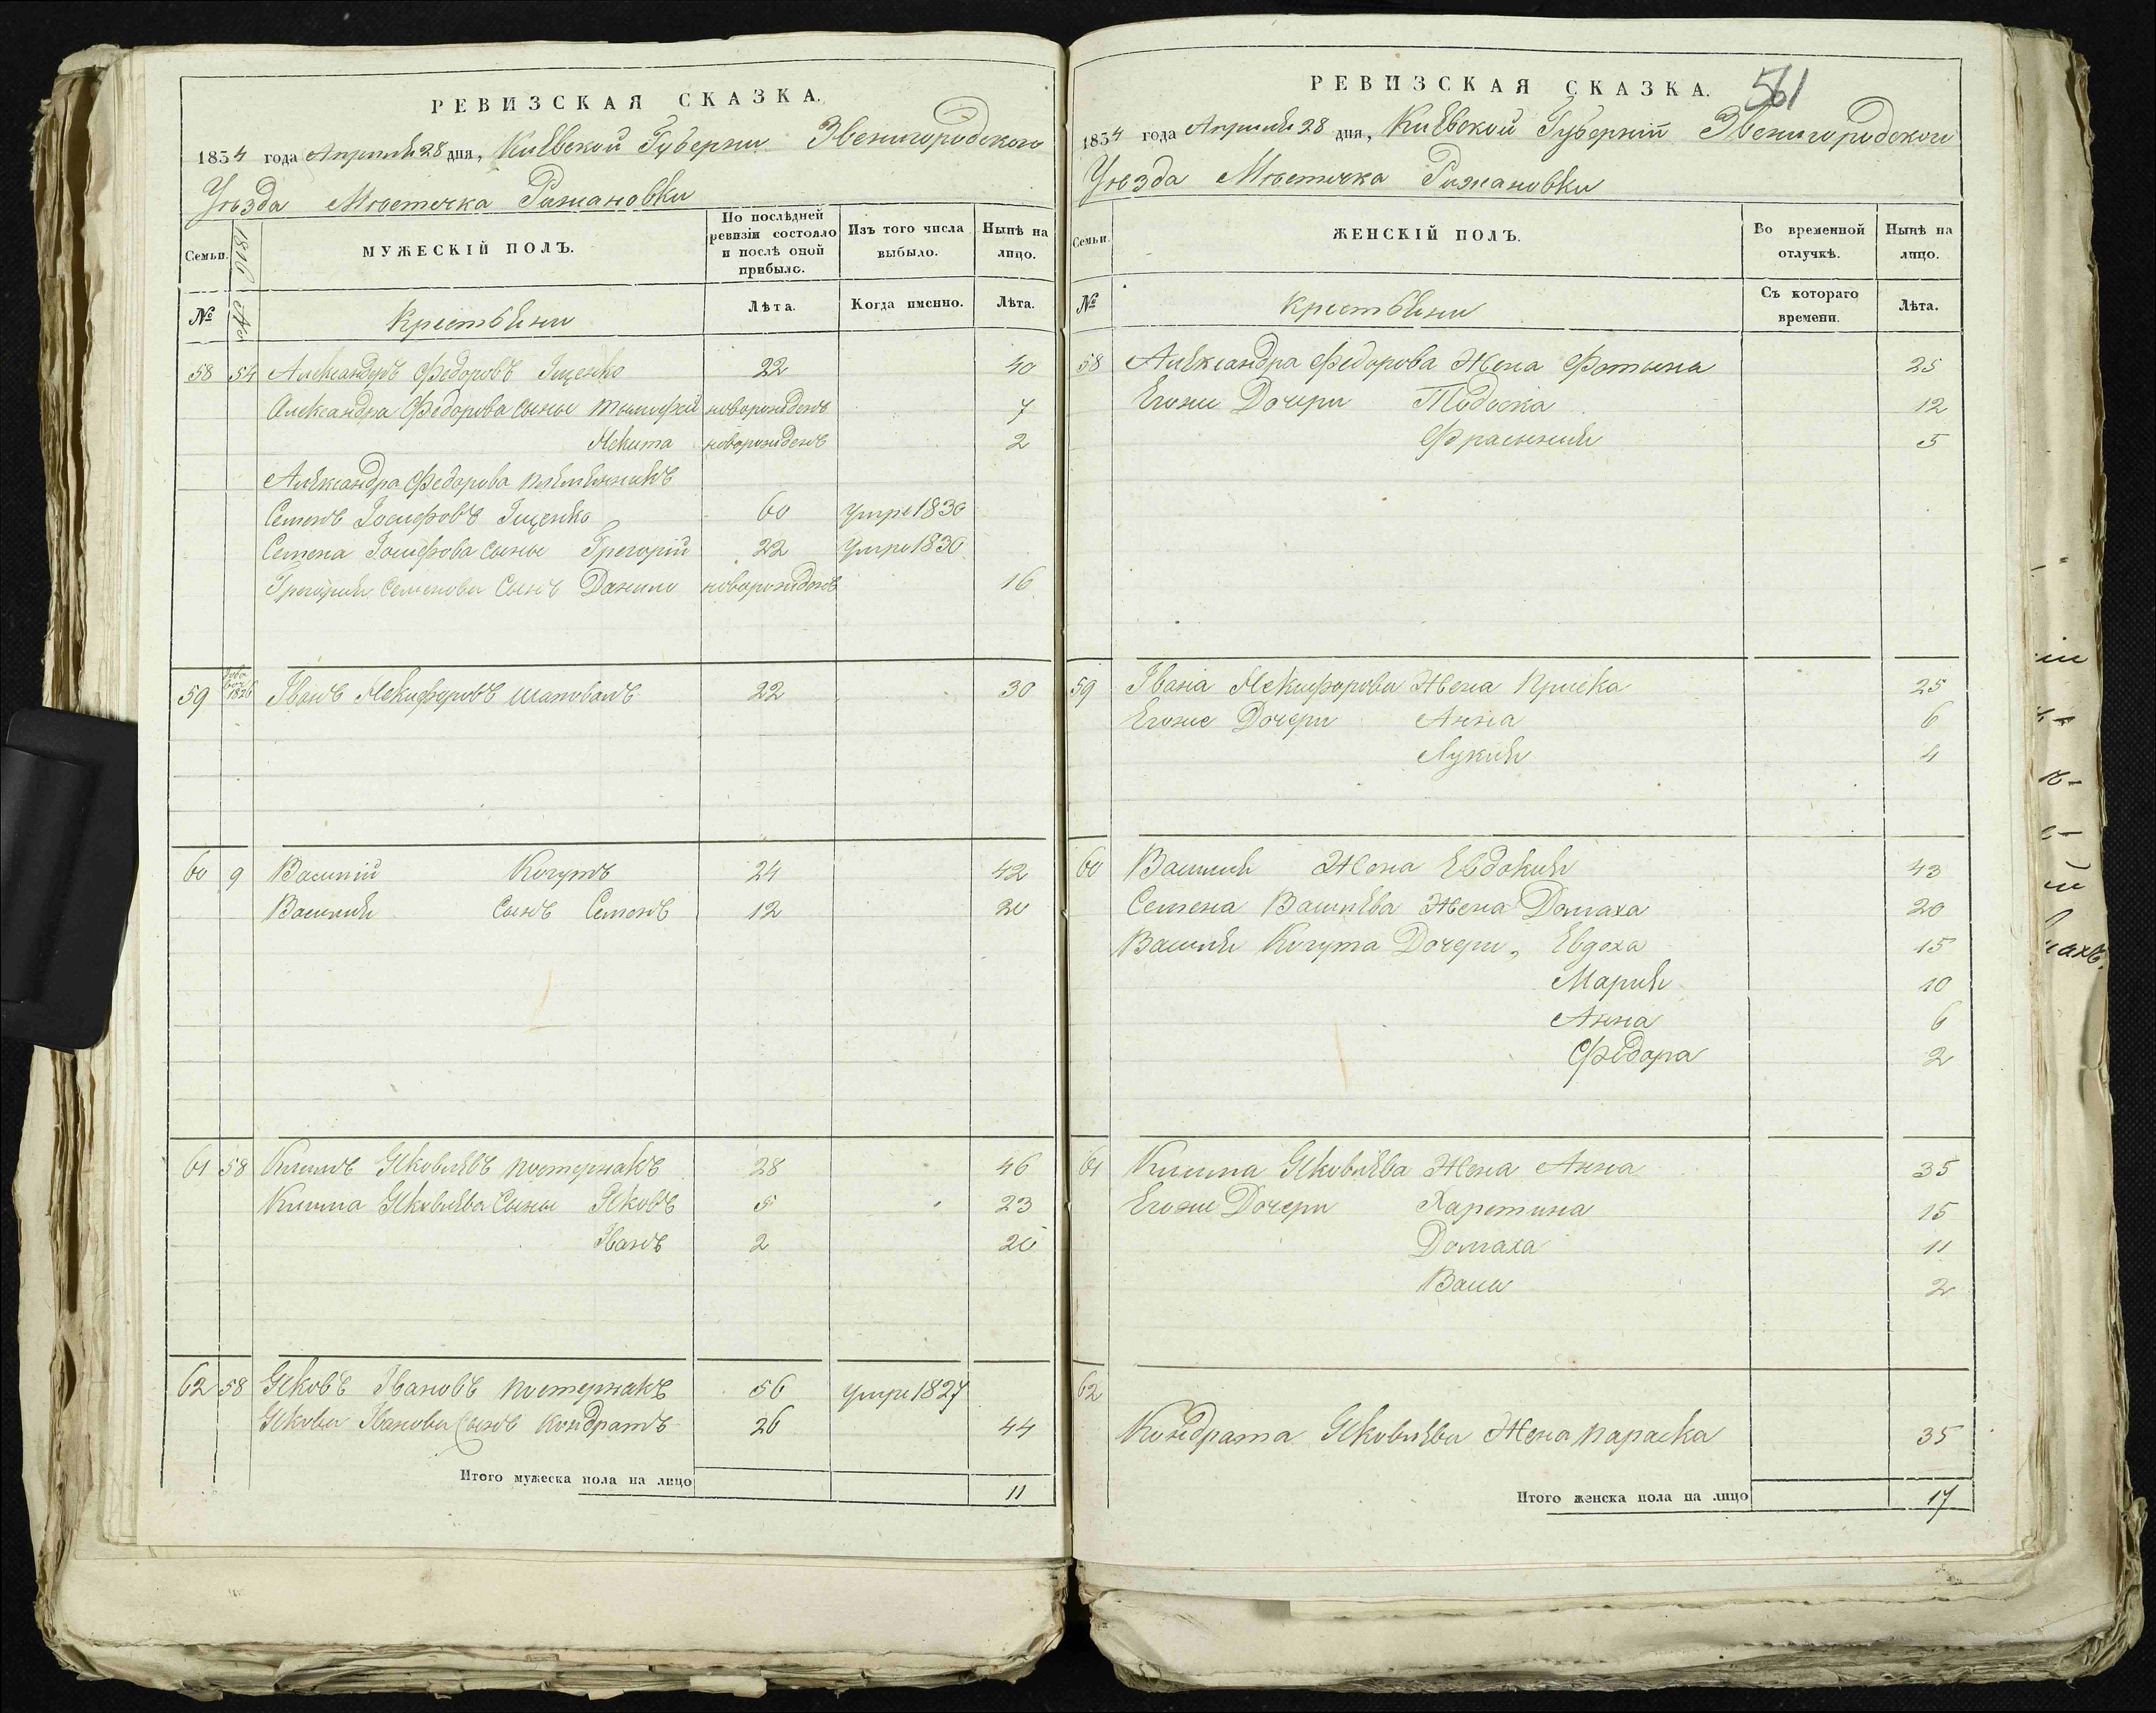 РЕВИЗСКАЯ СКАЗКА.
1834 года Апреля 28 дня, Кіевской Губерніи Звенигородского
Уѣзда Мѣстечка Рижановки
Семьи. 1816 №
МУЖЕСКІЙ ПОЛЪ.
По послѣдней ревизіи состояло и послѣ оной прибыло.
Изъ того числа выбыло.
Нынѣ на лицо.
№ Крестьяни Лѣта. Когда именно. Лѣта.
58 54 Александръ Федоровъ Іщенко 22 40
Александра Федорова сыны Тымофей новорожденъ 7
Некита новорожденъ 2
Александра Федорова племянникъ
Семенъ Іосифовъ Іщенко 60 умре 1830
Семена Іосифова сыны Грегорій 22 умре 1830
Грегорія Семенова Сынъ Данило новорожденъ 16
59 1826 Іванъ Некифоровъ шаповалъ 22 30
60 9 Василій Когутъ 24 42
Василія сынъ Семенъ 12 20
61 58 Климъ Яковлевъ постернакъ 28 46
Клима Яковлева Сыны Яковъ 5 23
Іванъ 2 20
62 58 Яковъ Івановъ постернакъ 56 умре 1827
Якова Іванова Сынъ Кондратъ 26 44
Итого мужеска пола на лицо 11
РЕВИЗСКАЯ СКАЗКА. 561
1834 года Апреля 28 дня, Кіевской Губерніи Звенигородского
Уѣзда Мѣстечка Рижановки
Семьи.
ЖЕНСКІЙ ПОЛЪ.
Во временной отлучкѣ.
Нынѣ на лицо.
№ Крестьяни Съ котораго времени. Лѣта.
58 Александра Федорова Жена Фотына 25
Егоже Дочери Тодоска 12
Фрасыния 5
59 Івана Некифорова Жена Приска 25
Егоже Дочери Анна 6
Лукия 4
60 Василия Жена Евдокия 43
Семена Василева Жена Домаха 20
Василия Когута Дочери, Евдоха 15
Мария 10
Анна 6
Федора 2
61 Клима Яковлева Жена Анна 35
Егоже Дочери Харетина 15
Домаха 11
2
62
Кондрата Яковлева Жена Параска 35
Итого женска пола на лицо 17